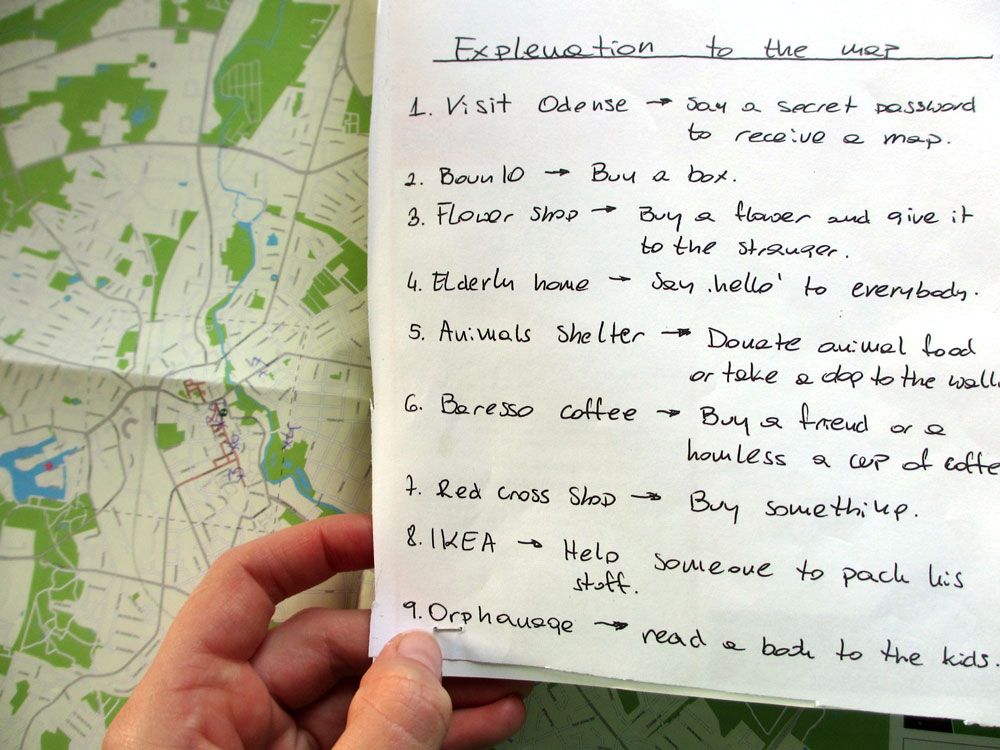 Explenation to the map
1. Visit Odense → Say a secret password
to receive a map.
2. → Buy a box.
3. Flower shop → Buy a flower and give it
to the stranger.
4. Elderly home → Say 'hello' to everybody.
5. Animals shelter → Donate animal food
or take a dog to the walk.
6. Baresso coffee → Buy a friend or a
homless a cup of coffe
7. Red cross shop → Buy something.
8. IKEA → Help someone to pack his
stuff.
9. Orphanage → read a book to the kids.